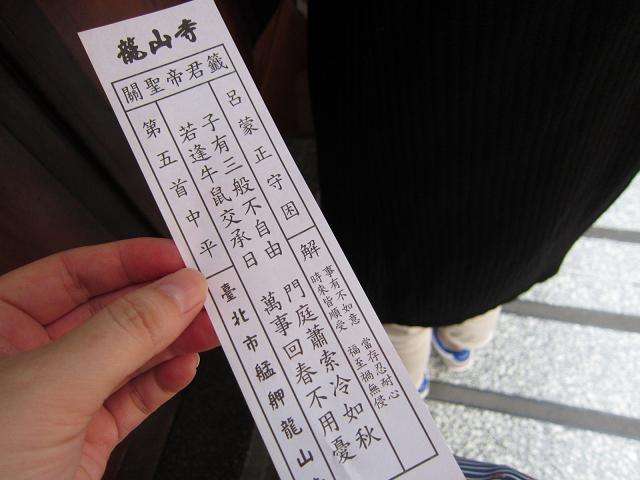 龍山寺
關聖帝君籤
呂蒙正守困
解
事有不如意 當存忍耐心
時來皆順受 福至禍無侵
子有三般不自由 門庭蕭索冷如秋
若逢牛鼠交承日 萬事回春不用憂
第五首中平
臺北市艋舺龍山